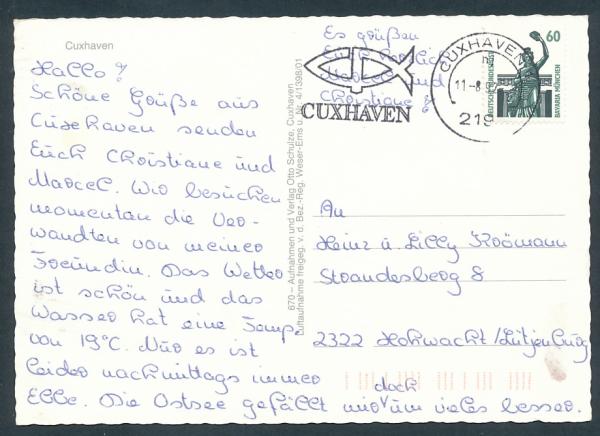 Cuxhaven
Hallo!
Schöne Grüße aus
Cuxhaven senden
Euch Christiane und
Marcel. Wir besuchen
momentan die Ver-
wandten von meiner
Freundin. Das Wetter
ist schön und das
Wasser hat eine Temp.
von 19°C. Nur es ist
leider nachmittags immer
Ebbe. Die Ostsee gefällt mir doch um vieles besser.
Es grüßen
Euch herzlich
Marcel und
Christiane!
670 – Aufnahmen und Verlag Otto Schulze, Cuxhaven
Luftaufnahme freigeg. v. d. Bez.-Reg. Weser-Ems u. Nr. 4/1398/01
CUXHAVEN
CUXHAVEN
11-8.9
219
60
DEUTSCHE BUNDESPOST
BAVARIA MÜNCHEN
An
Heinz u. Lilly
Strandesberg 8
2322 Hohwacht/Lütjenburg